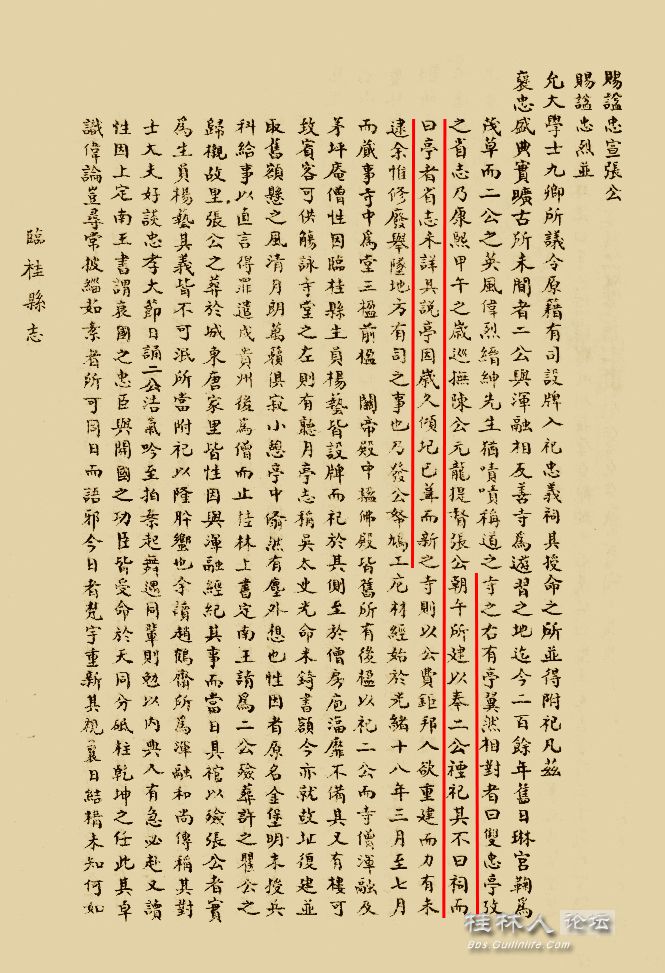 賜諡忠宣張公
賜諡忠烈並
允大學士九卿所議令原籍有司設牌入祀忠義祠其授命之所並得附祀凡茲
襃忠盛典實曠古所未聞者二公與渾融相友善寺為遊習之地迄今二百餘年舊日琳宮鞠為
茂草而二公之英風偉烈縉紳先生猶嘖嘖稱道之寺之右有亭翼然相對者曰雙忠亭攷
之省志乃康熙甲午之歲巡撫陳公元龍提督張公朝午所建以奉二公禋祀其不曰祠而
曰亭者省志未詳其說亭因歲久傾圮已葺而新之寺則以公費鉅邦人欲重建而力有未
逮余惟修廢舉墜地方有司之事也乃發公帑鳩工庀材經始於光緒十八年三月至七月
而蕆事寺中為堂三楹前楹 關帝殿中楹佛殿皆舊所有後楹以祀二公而寺僧渾融及
茅坪庵僧性因臨桂縣生員楊藝皆設牌而祀於其側至於僧房庖湢靡不備具又有樓可
致賓客可供觴詠寺堂之左則有聽月亭志稱吳太史光命未錡書額今亦就故址復建並
取舊額懸之風清月朗萬籟俱寂小憩亭中翛然有塵外想也性因者原名金堡明末授兵
科給事以直言得罪遣戍貴州後為僧而止桂林上書定南王請為二公殮葬許之瞿公之
歸櫬故里張公之葬於城東唐家里皆性因與渾融經紀其事而當日具棺以殮張公者實
為生員楊藝其義皆不可泯所當附祀以隆肸蠁也余讀趙鶴齋所為渾融和尚傳稱其對
士大夫好談忠孝大節日誦二公浩氣吟至拍案起舞遇同輩則勉以內典人有急必赴又讀
性因上定南王書謂衰國之忠臣與開國之功臣皆受命於天同分砥柱乾坤之任此其卓
識偉論豈尋常披緇茹素者所可同日而語邪今日者梵宇重新其視曩日結構未知何如
臨桂縣志
桂林人论坛
Bbs.Guilinlife.Com